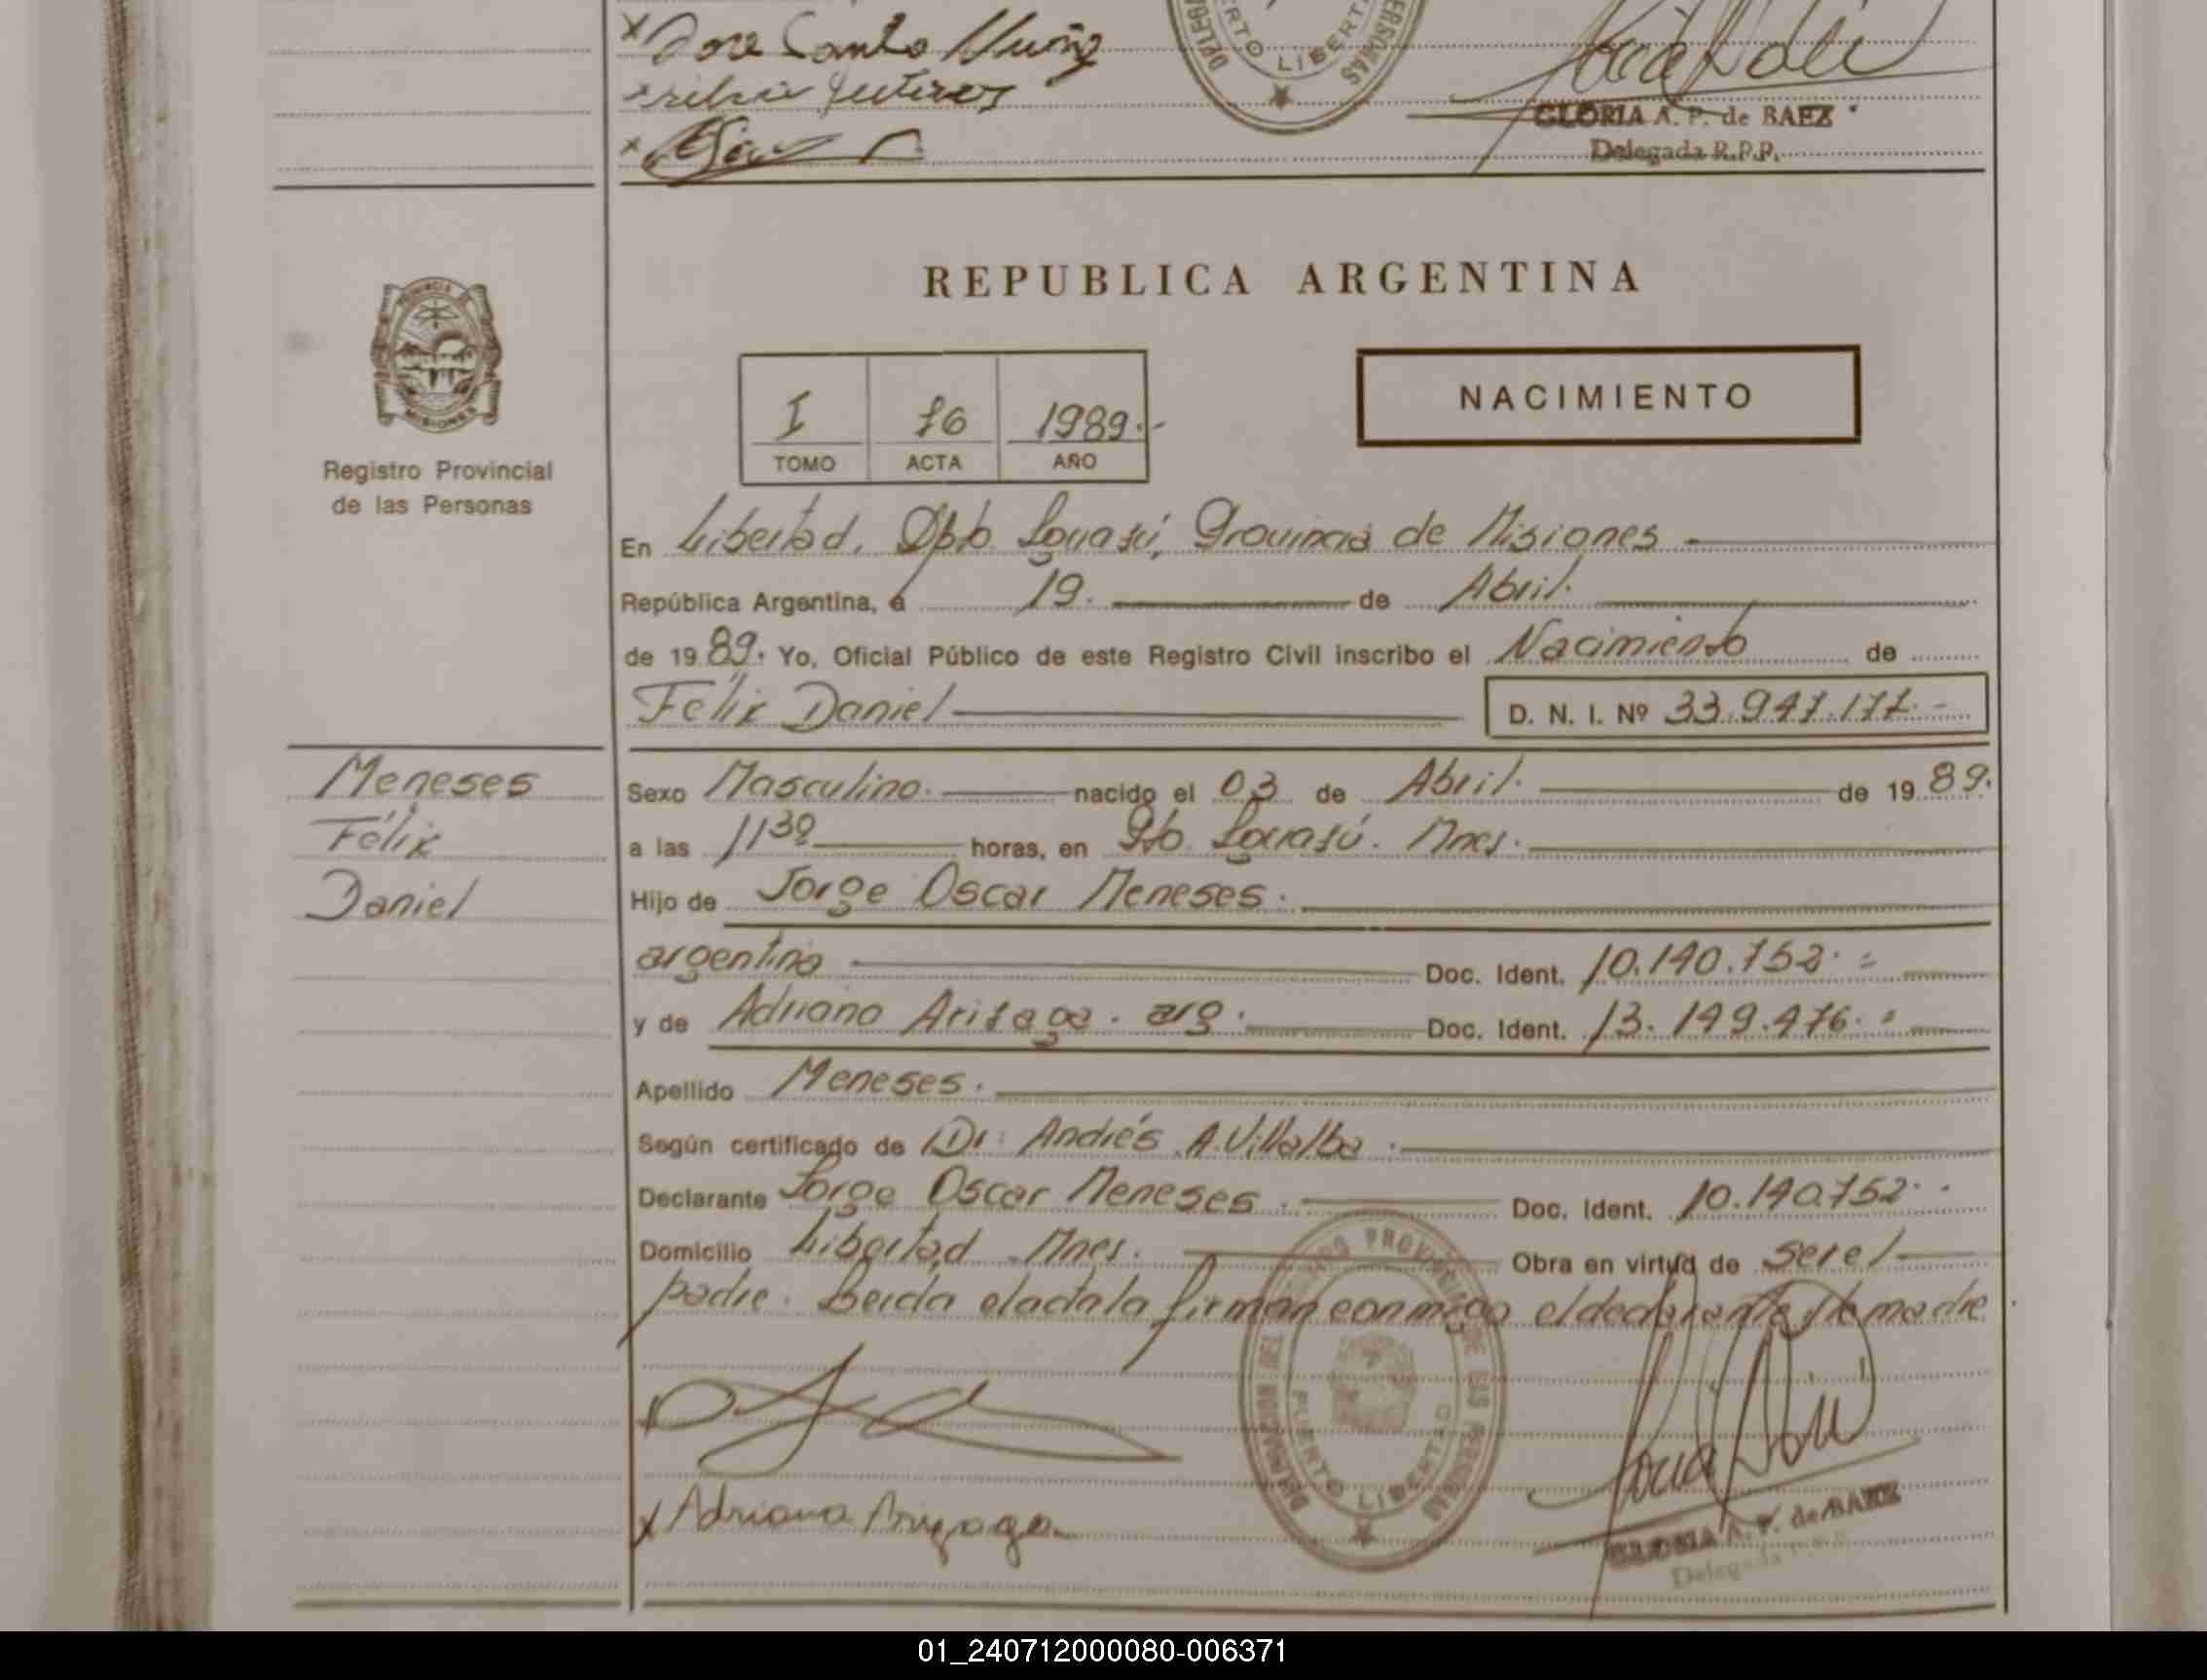 x Jose Santo Nuñez
GLORIA A. P. de BAEZ
Delegada R.P.P.
PROVINCIA DE
MISIONES
Registro Provincial
de las Personas
REPUBLICA ARGENTINA
NACIMIENTO
I 76 1989.-
TOMO ACTA AÑO
En Libertad, Dpto. Iguazú, Provincia de Misiones.
República Argentina, a 19. de Abril.
de 1989. Yo, Oficial Público de este Registro Civil inscribo el Nacimiento de
Félix Daniel D. N. I. Nº 33.947.177.-
Meneses
Félix
Daniel
Sexo Masculino. nacido el 03 de Abril. de 1989.
a las 11 30 horas, en Pto. Iguazú. Mnes.
Hijo de Jorge Oscar Meneses.
argentino Doc. Ident. 10.140.752.=
y de Adriana Arizaga. arg. Doc. Ident. 13.149.476.=
Apellido Meneses.
Según certificado de Dr. Andrés A. Villalba.
Declarante Jorge Oscar Meneses. Doc. Ident. 10.140.752.
Domicilio Libertad Mnes. Obra en virtud de ser el
padre. Leída el acta la firman conmigo el declarante y la madre.
PUERTO LIBERTAD
x Adriana Arizaga
GLORIA A. P. de BAEZ
Delegada R.P.P.
01_240712000080-006371